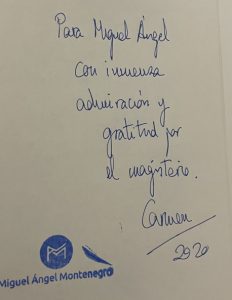 Para Miguel Ángel
con inmensa
admiración y
gratitud por
el magisterio.
Carmen
2020
Miguel Ángel Montenegro